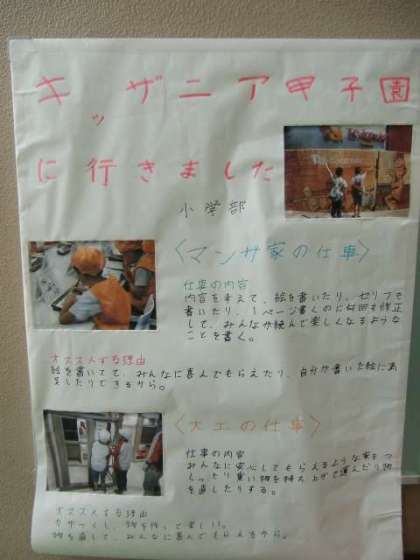 キッザニア甲子園
に行きました
小学部
〈マンガ家の仕事〉
仕事の内容
内容を考えて、絵を書いたり、セリフを
書いたり、1ページ書くのに何回も修正
して、みんなが読んで楽しくなるような
ことを書く。
オススメする理由
絵を書いてて、みんなに喜んでもらえたり、自分が書いた絵に満
足したりできるから。
〈大工の仕事〉
仕事の内容
みんなに安心してもらえるような家をつ
くったり重い物を持ち上げて運んだり物
を直したりする。
オススメする理由
物を直して、みんなに喜んでもらえるから。